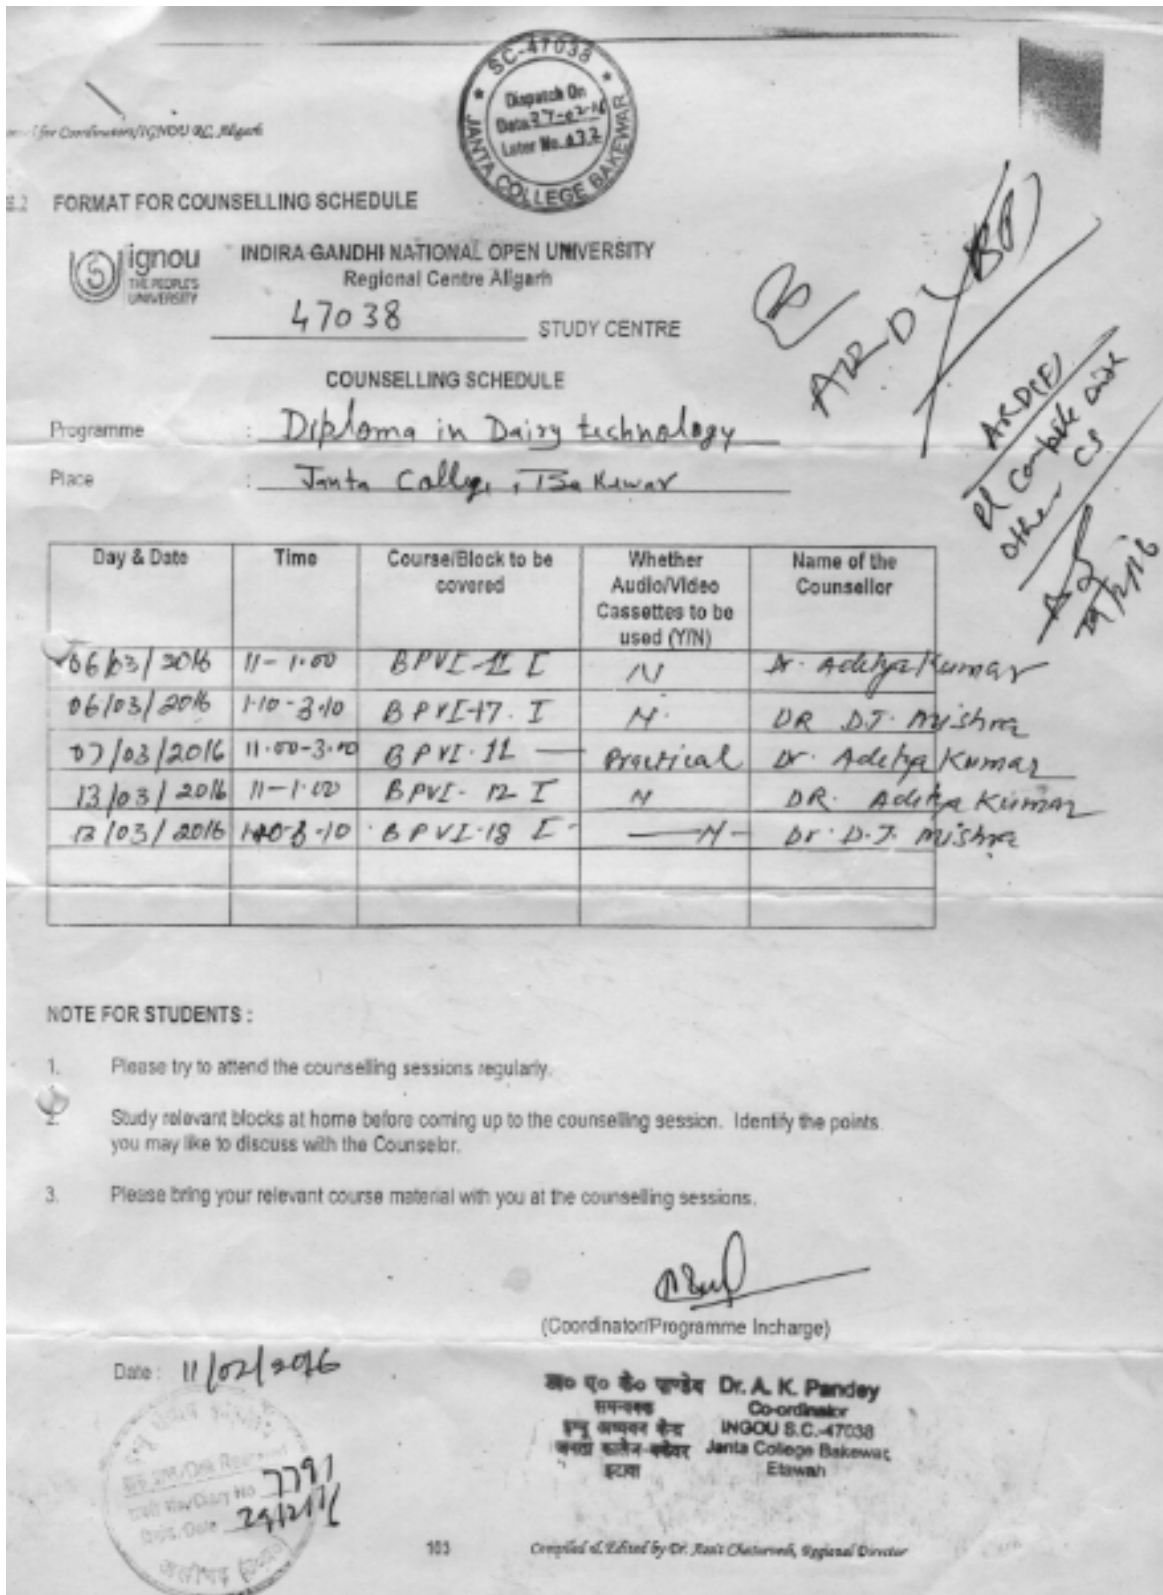 SC-47038
Dispatch On
Date 27-02-16
Later No. 632
JANTA COLLEGE BAKEWAR
for Coordinators/IGNOU RC, Aligarh
FORMAT FOR COUNSELLING SCHEDULE
ignou
THE PEOPLE'S
UNIVERSITY
INDIRA GANDHI NATIONAL OPEN UNIVERSITY
Regional Centre Aligarh
47038 STUDY CENTRE
COUNSELLING SCHEDULE
Programme : Diploma in Dairy technology
Place : Janta College, Bakewar
ARD(E)
Pl compile with
other CS
29/2/16
Day & Date Time Course/Block to be covered Whether Audio/Video Cassettes to be used (Y/N) Name of the Counsellor
06/03/2016 11-1.00 BPVI-11 I N Dr. Aditya Kumar
06/03/2016 1.10-3.10 BPVI-17. I N. DR D.J. Mishra
07/03/2016 11.00-3.00 BPVI-11 — Practical Dr. Aditya Kumar
13/03/2016 11-1.00 BPVI-12 I N DR. Aditya Kumar
13/03/2016 1.10-3.10 BPVI-18 I - N - Dr. D.J. Mishra
NOTE FOR STUDENTS :
1. Please try to attend the counselling sessions regularly.
2. Study relevant blocks at home before coming up to the counselling session. Identify the points
you may like to discuss with the Counselor.
3. Please bring your relevant course material with you at the counselling sessions.
(Coordinator/Programme Incharge)
Date : 11/02/2016
डा० ए० के० पाण्डेय Dr. A. K. Pandey
समन्वयक Co-ordinator
इग्नू अध्ययन केन्द्र INGOU S.C.-47038
जनता कालेज-बकेवर Janta College Bakewar,
इटावा Etawah
7791
29/2/16
103 Compiled & Edited by Dr. Amit Chaturvedi, Regional Director